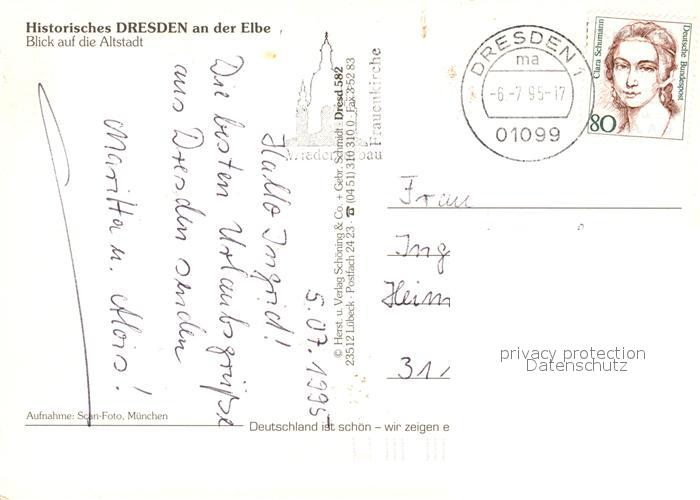 Historisches DRESDEN an der Elbe
Blick auf die Altstadt
5.07.1995
Hallo Ingrid!
Die besten Urlaubsgrüße
aus Dresden senden
Maritta u. Alois!
Aufnahme: Scan-Foto, München
© Herst. u. Verlag Schöning & Co. + Gebr. Schmidt · Dresd 582
23512 Lübeck · Postfach 24 23 · ☎ (04 51) 310 310 0 · Fax 3 52 83
Wiederaufbau
Frauenkirche
DRESDEN 1
ma
-6.-7 95-17
01099
Clara Schumann
Deutsche Bundespost
80
Frau
Ing
Heim
31
privacy protection
Datenschutz
Deutschland ist schön – wir zeigen e